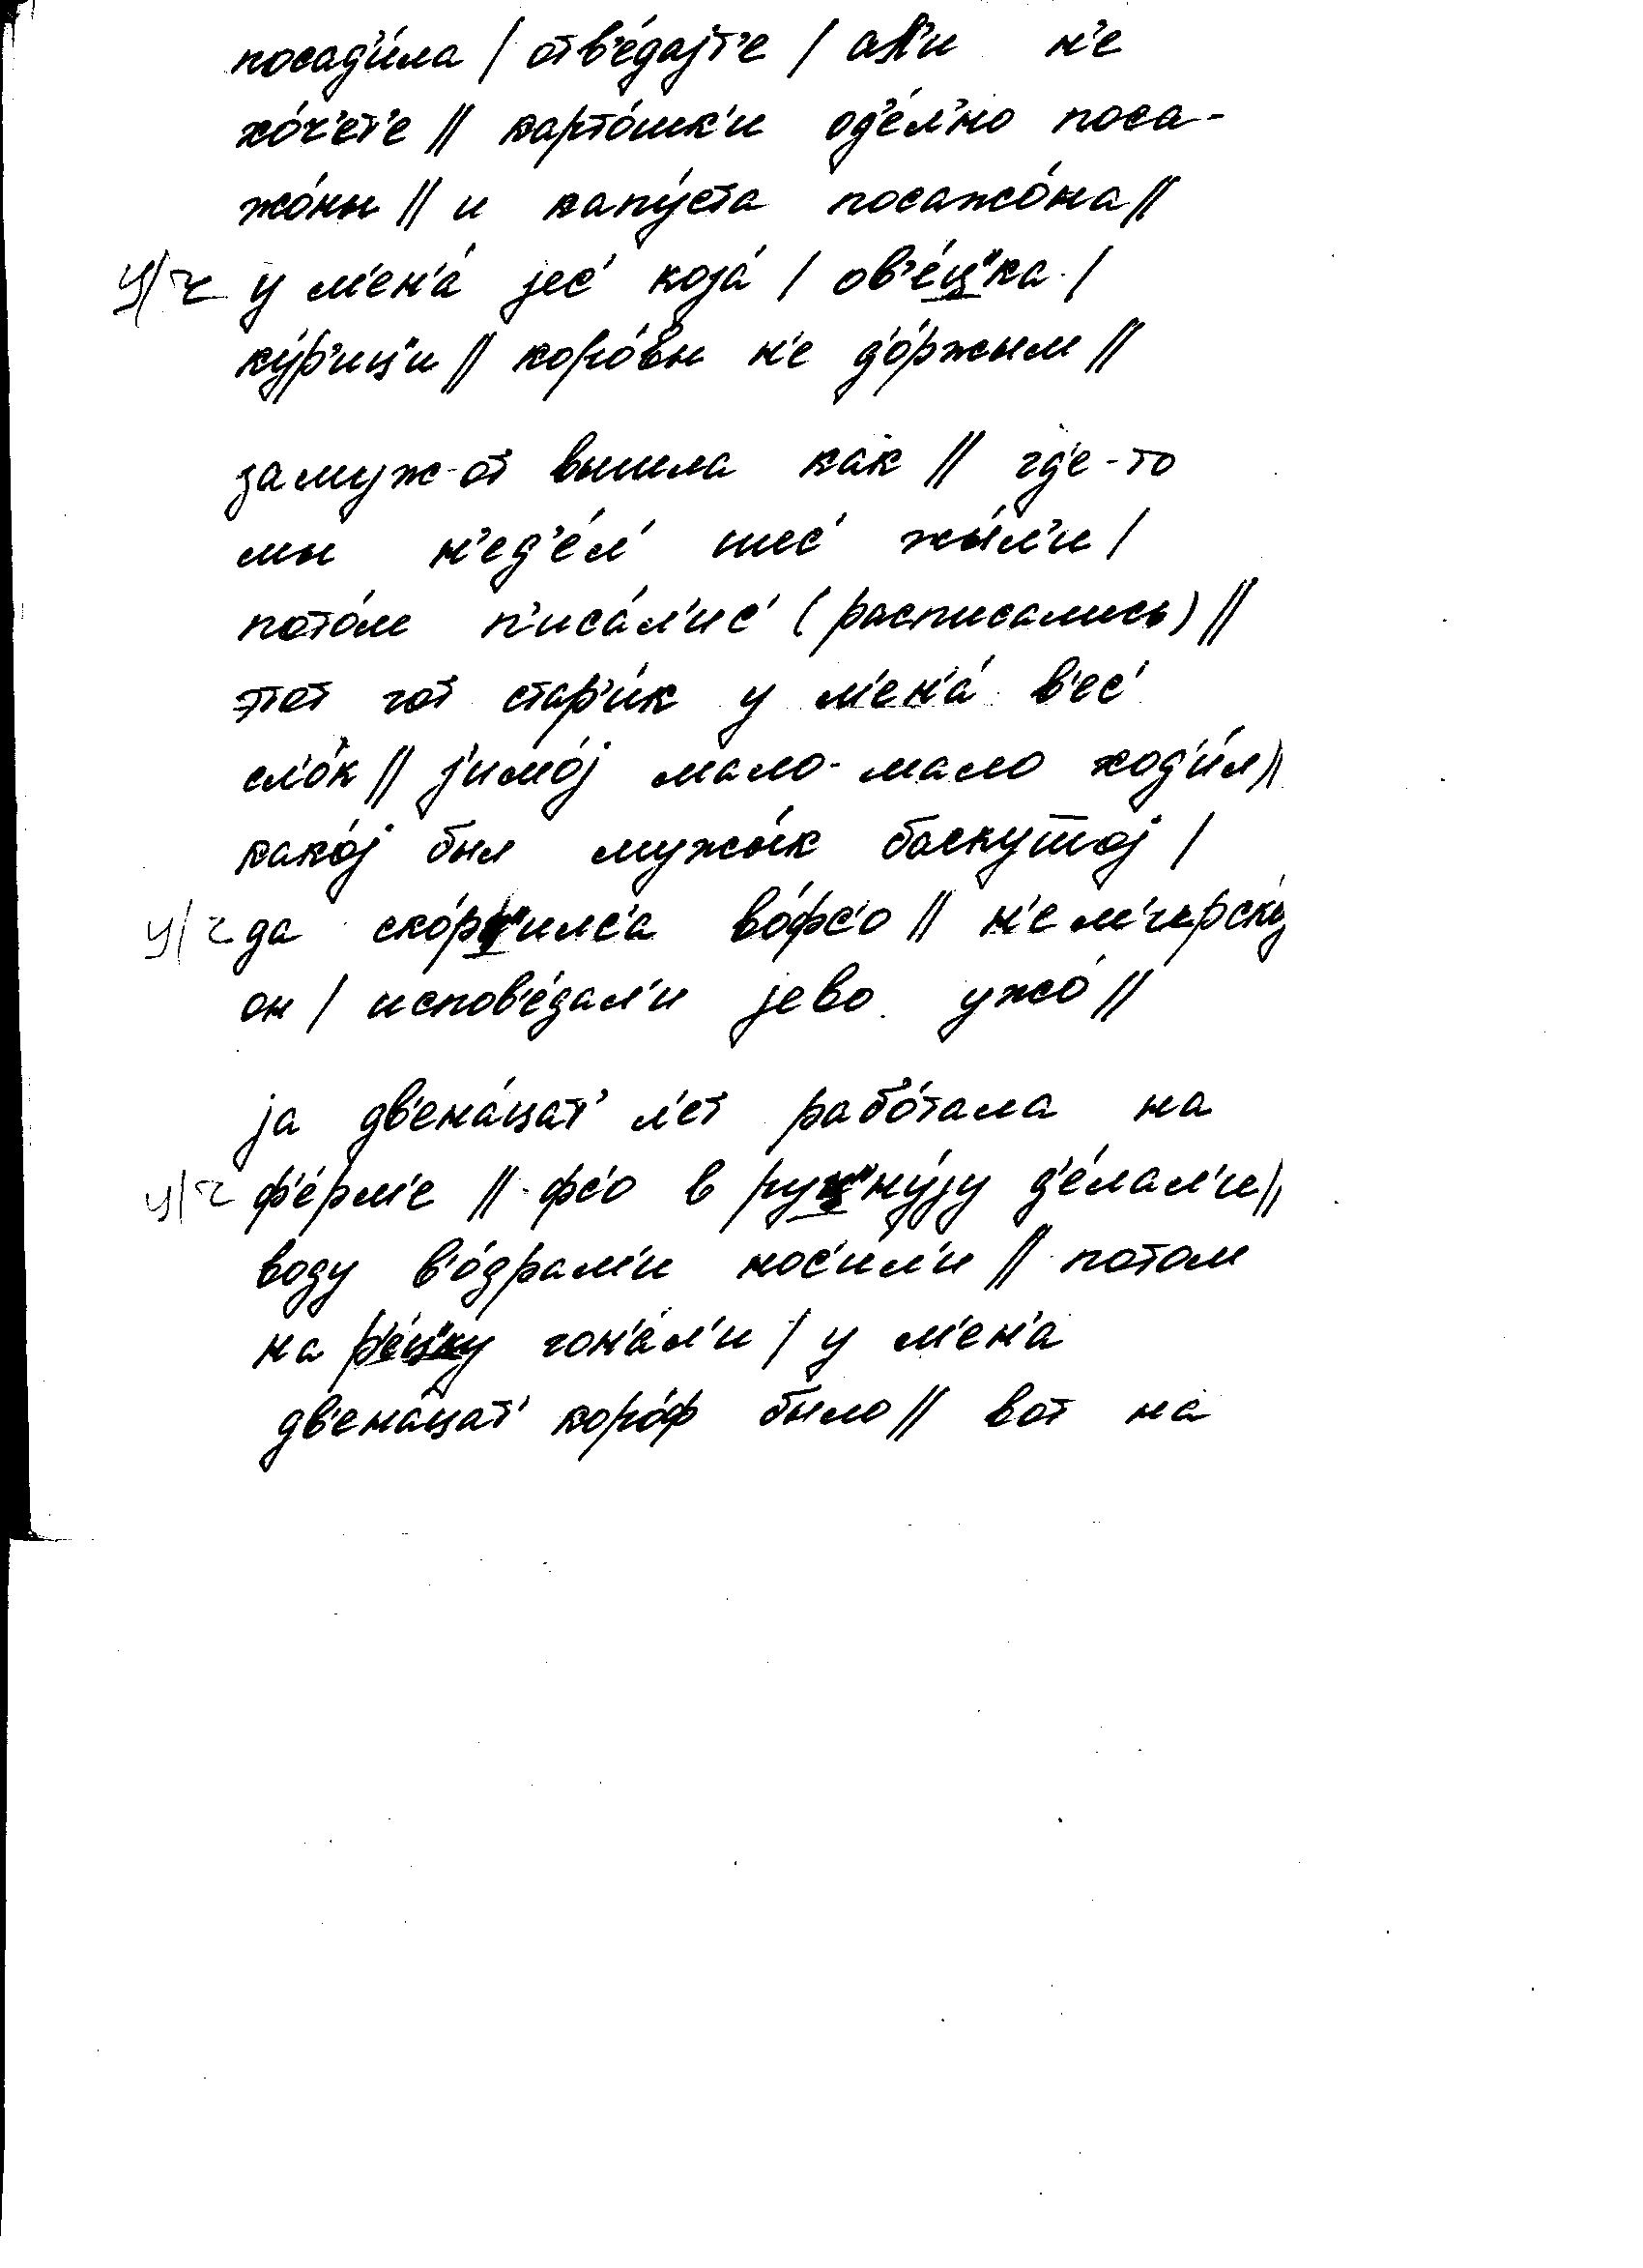 посад'и́ла / отв'е́дајт'е / ал'и н'е
хо́ч'ет'е // карто́шк'и од'е́л'но поса-
жо́ны // и капу́ста посажо́на //
ц/ч у м'ен'а́ јес' која́ / ов'е́ц"ка /
ку́р'иц"и // коро́вы н'е д'о́ржым //
замуж-от вышла как // гд'е-то
мы н'ед'е́л' шес' жы́л'и /
пото́м п'иса́л'ис' (расписались) //
этот гот стар'и́к у м'ен'а́ в'ес'
сл'о́к // з'имо́ј мало-мало ход'и́л //
како́ј был мужы́к баскушшој /
ц/ч да ско́рц"илс'а во́фс'о //
он / испов'е́дал'и јево ужо́ //
ја дв'ена́цат' л'ет рабо́тала на
ц/ч ф'е́рм'е // фс'о в руц"ну́ју д'е́лал'и //
воду в'о́драм'и нос'и́л'и // потом
на р'е́ц"ку гон'а́л'и / у м'ен'а
дв'ена́цат' коро́ф было // вот на